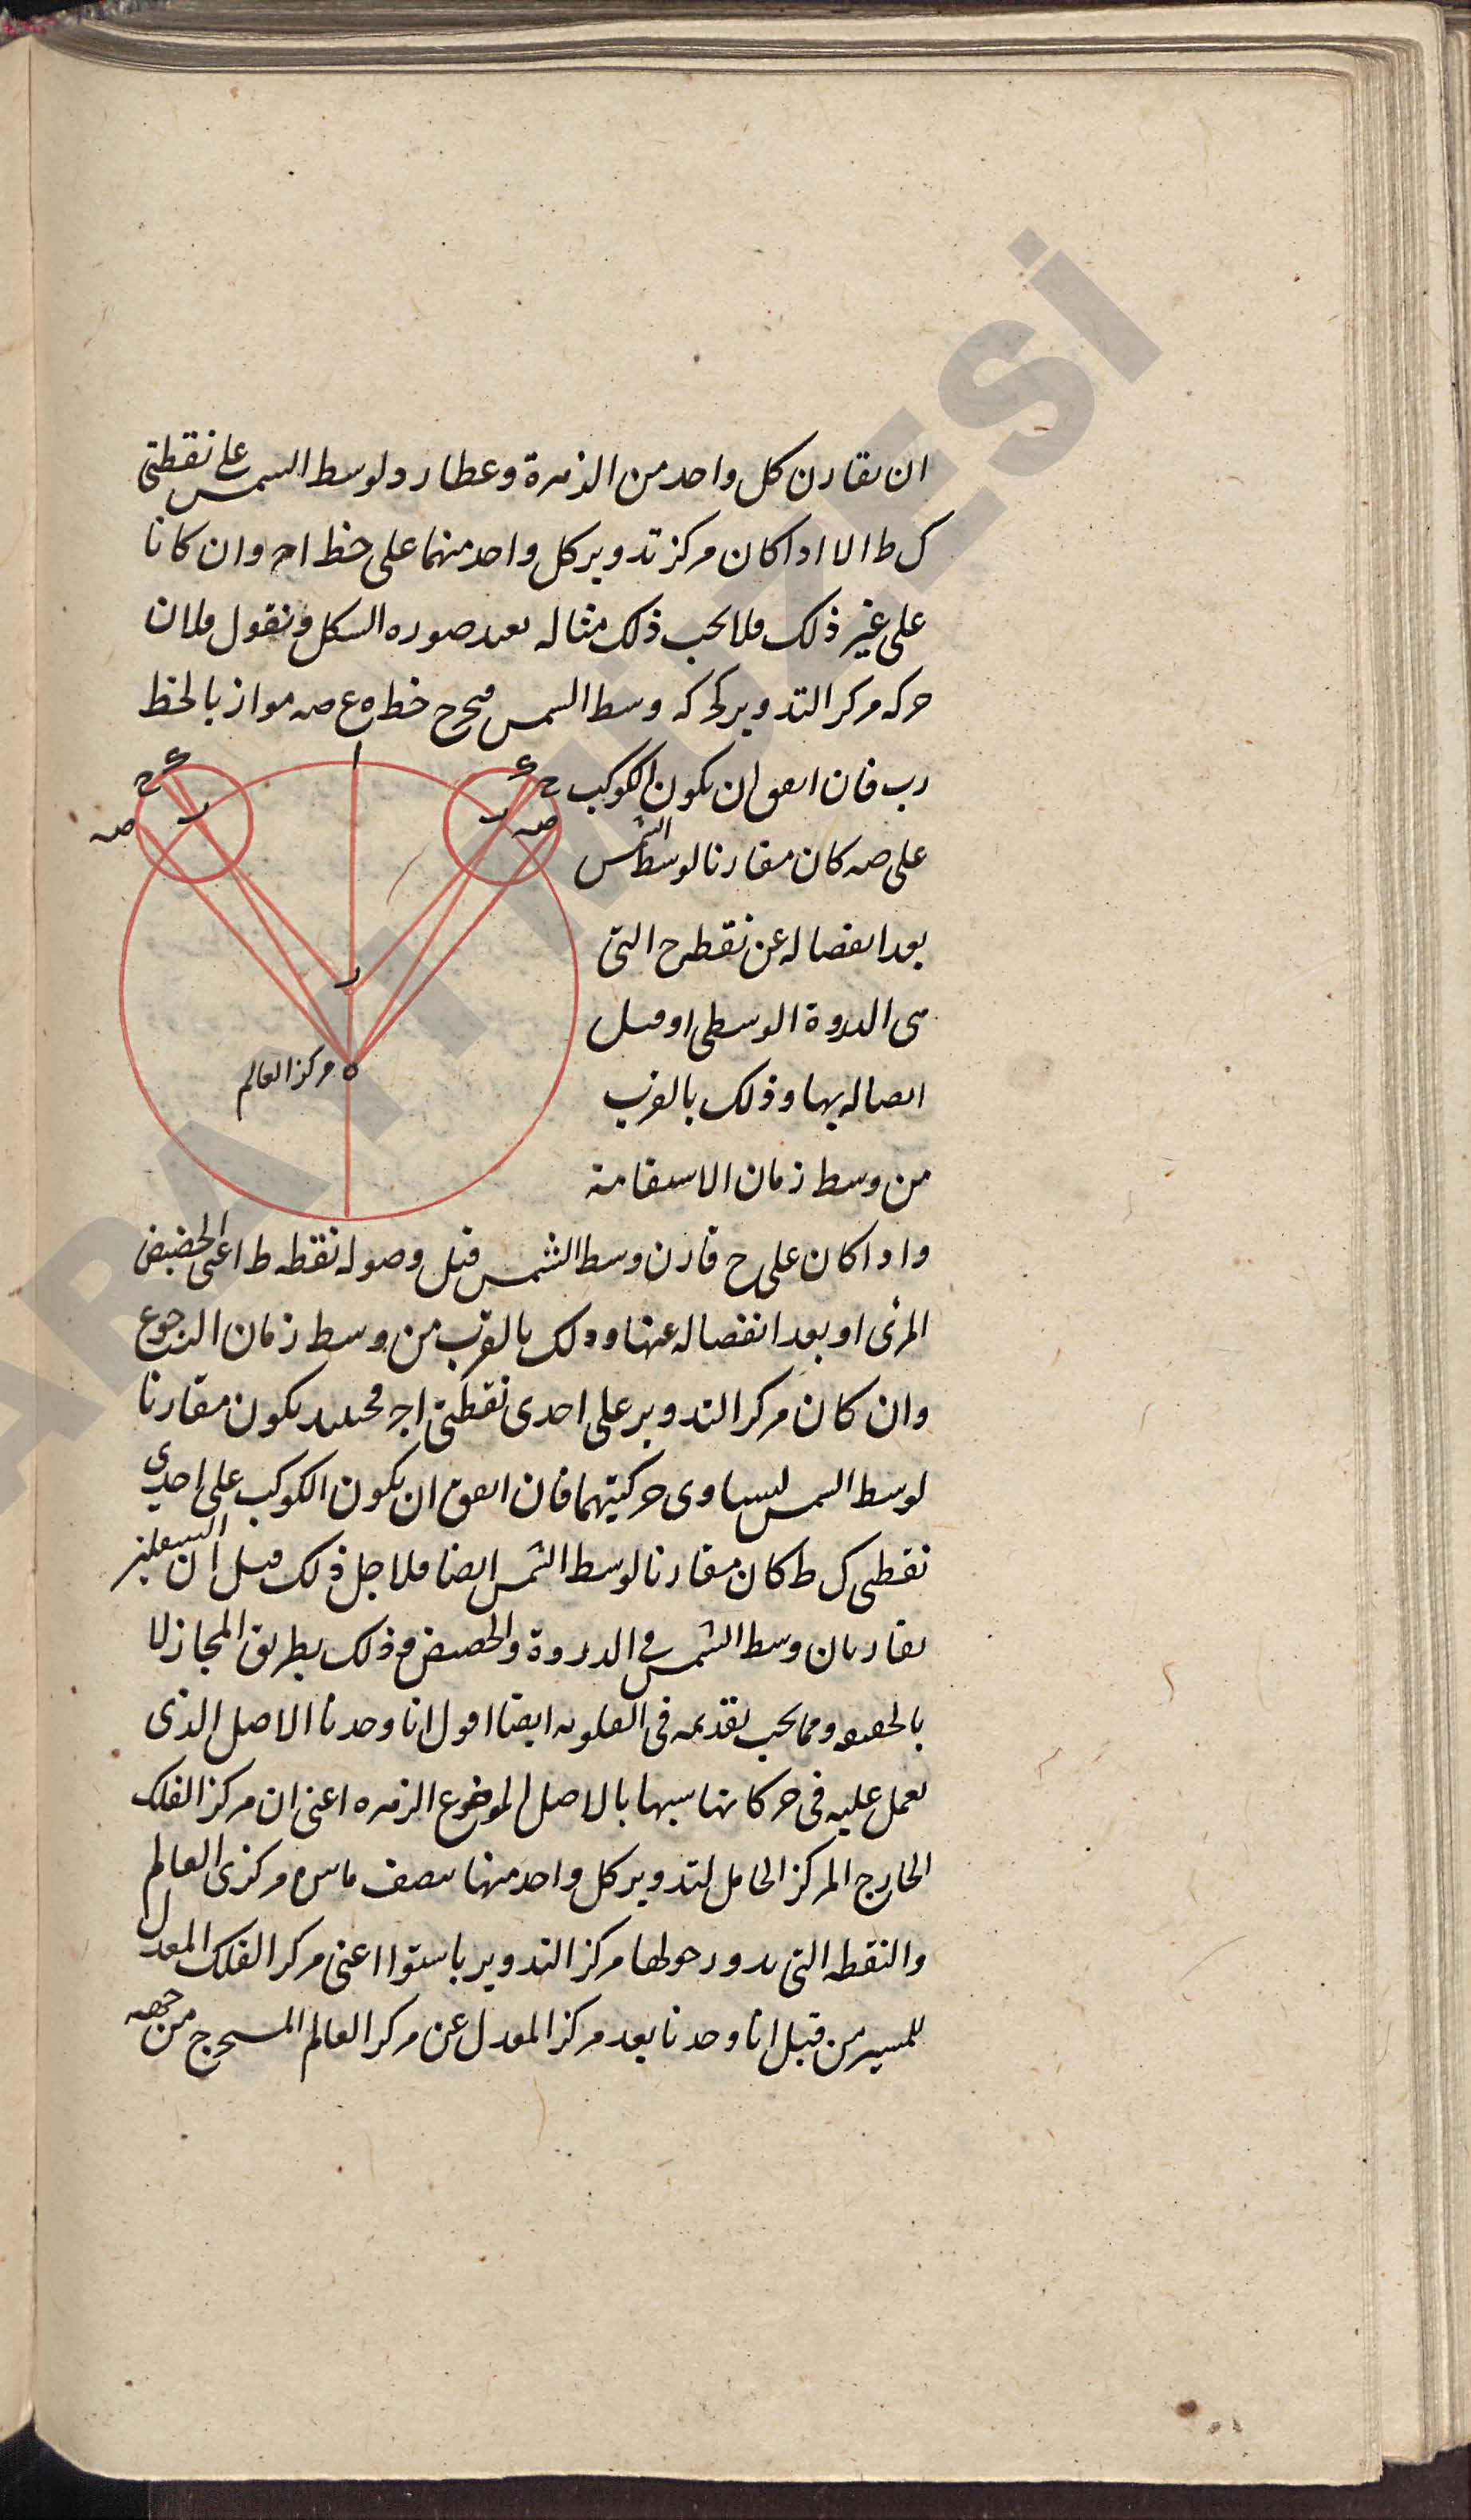 ان يقارن كل واحد من الزهرة وعطارد لوسط الشمس على نقطتي
ك ط الا اذا كان مركز تدوير كل واحد منهما على خط اج وان كانا
على غير ذلك فلا يجب ذلك مثاله نعيد صوره الشكل ونقول فلان
حركه مركز التدوير كحركه وسط الشمس فيخرج خط ه ع صه مواز بالخط
رب فان اتفق ان يكون الكوكب
على صه كان مقارنا لوسط الشمس
بعد انفصاله عن نقطه ح التي
هى الذروة الوسطى او قبل
اتصاله بها وذلك بالقرب
من وسط زمان الاستقامة
واذا كان على ح قارن وسط الشمس قبل وصوله نقطه ط اعنى الحضيض
المرئى او بعد انفصاله عنها وذلك بالقرب من وسط زمان الرجوع
وان كان مركز التدوير على احدى نقطتي اج فحينئذ يكون مقارنا
لوسط الشمس ليساوى حركتيهما فان اتفق ان يكون الكوكب على احدى
نقطتى ك ط كان مقارنا لوسط الشمس ايضا فلاجل ذلك قيل ان السفليين
يقارنان وسط الشمس فى الذروة والحضيض وذلك بطريق المجاز لا
بالحقيقه ومما يجب تقديمه فى العلويه ايضا اقول انا وجدنا الاصل الذى
نعمل عليه فى حركاتها شبيها بالاصل الموضوع الزهره اعنى ان مركز الفلك
الخارج المركز الحامل لتدوير كل واحد منها ينصف ما بين مركزى العالم
والنقطه التى يدور حولها مركز التدوير باستوا اعنى مركز الفلك المعدل
للمسير من قبل انا وجدنا بعد مركز المعدل عن مركز العالم المستخرج من جهه
ا
ح
ر
صه
ح
ر
صه
ر
ه مركز العالم